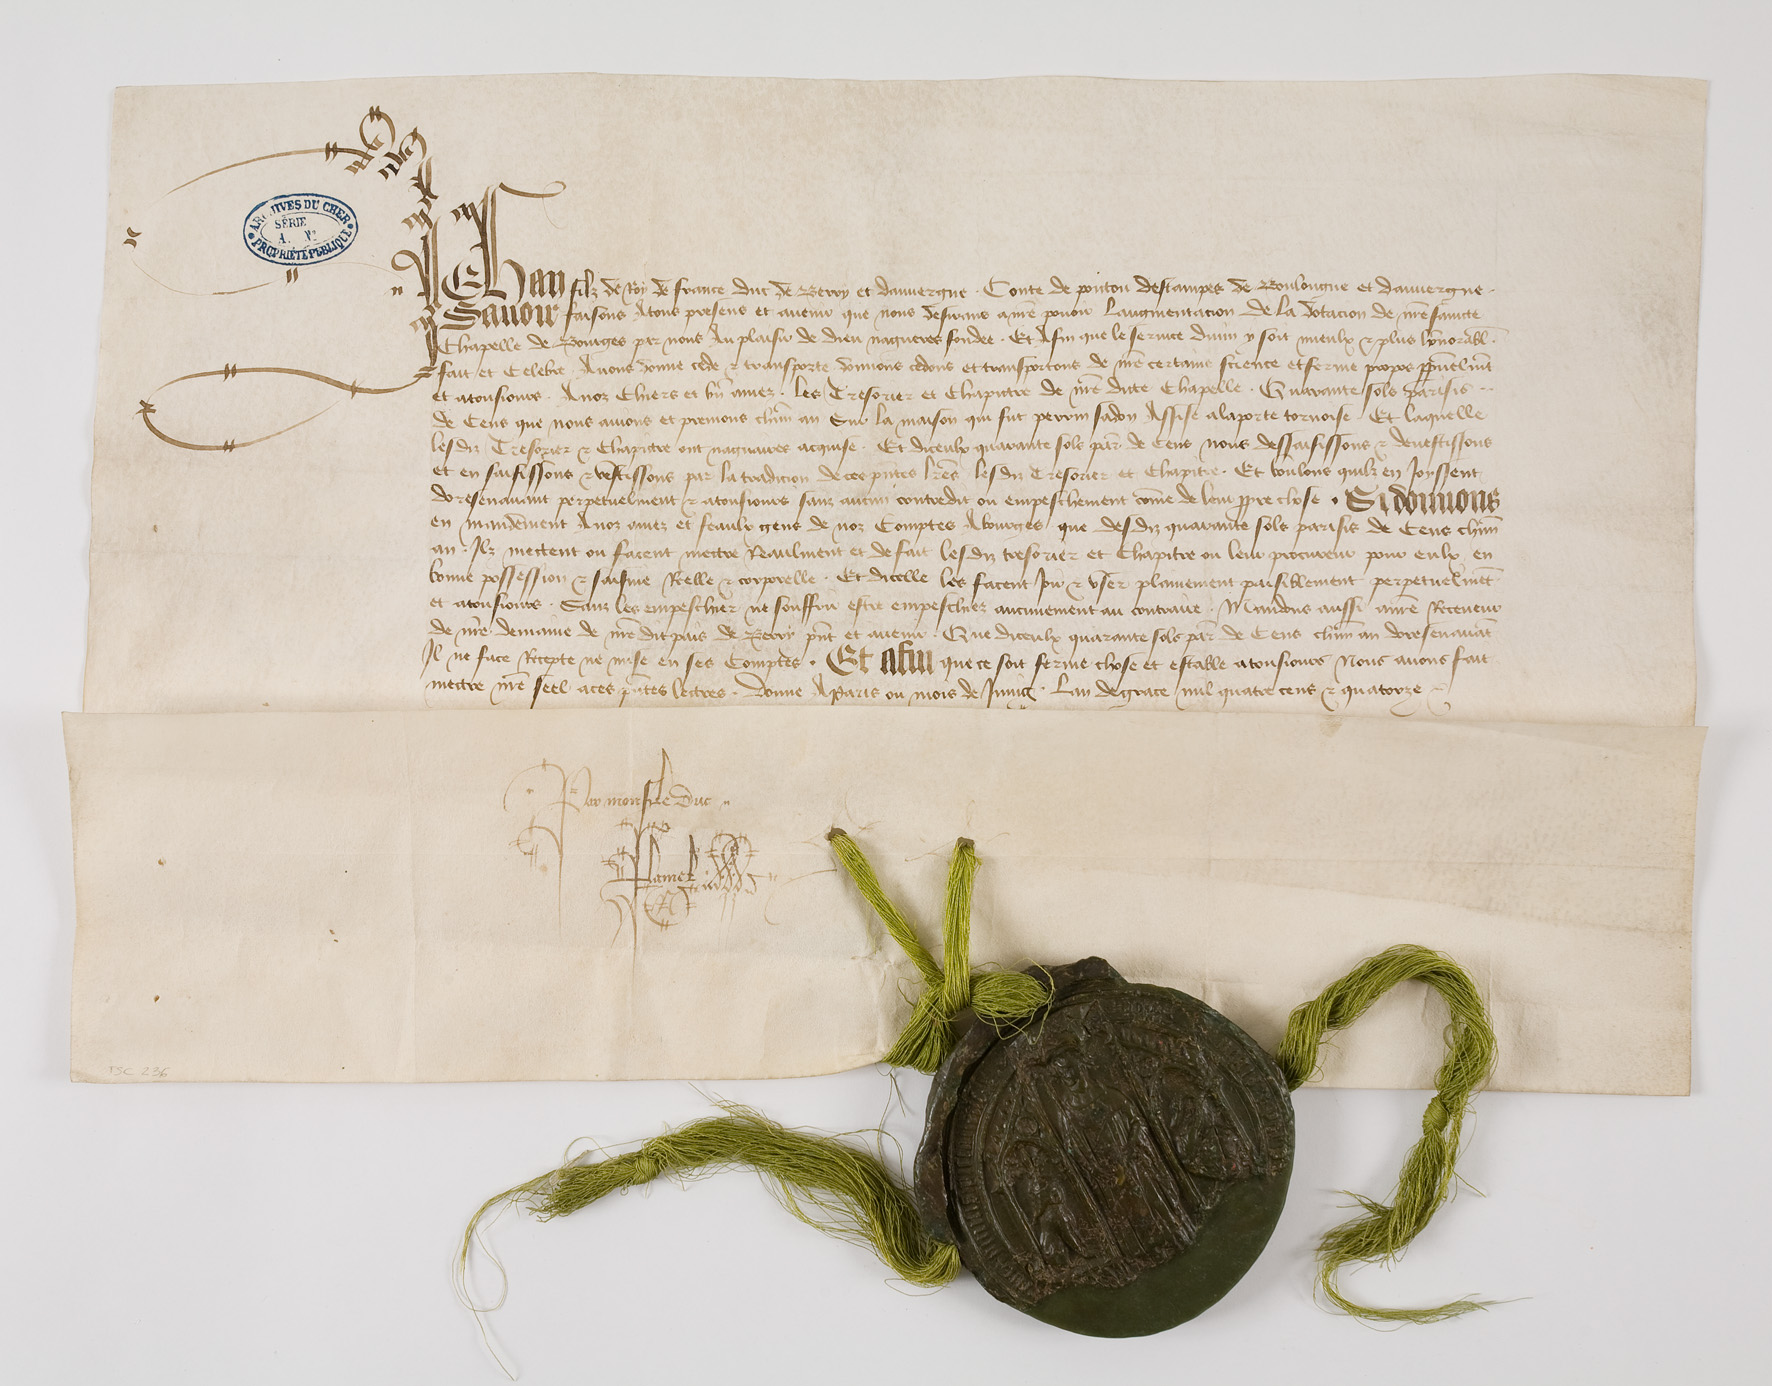 ARCHIVES DU CHER
SÉRIE
A. N°
PROPRIÉTÉ PUBLIQUE
Jehan filz de Roy de france duc de Berry et dauuergne . Conte de poitou destampes de Boulongne et dauuergne .
Sauoir faisons Atous presens et auenir que nous desirans a nre pouoir Laugmentacion de la dotacion de nre saincte
Chapelle de Bourges par nous Au plaisir de dieu nagueres fondee . Et Afin que le seruice diuin y soit mieulx & plus honorabl.
fait et Celebre Auons donne cede & transporte donnons cedons et transportons de nre certaine science et ferme propos ppetuelmt
et atousiours . Anoz Chiers et bn amez . les Tresorier et Chapitre de nre dicte Chapelle . Quarante sols parisis
de Cens que nous auions et prenions chun an Sur la maison qui fut perrin sadon Assise alaporte tornoise . Et laquelle
lesdiz Tresorier & Chapitre ont nagueres acquise . Et diceulx quarante sols par de Cens nous dessaisissons & deuestissons
et en saisissons & vestissons par la tradicion de ces pntes lres lesdiz Tresorier et Chapitre . Et voulons quilz en Joyssent
doresenauant perpetuelment & atousiours sanz aucun contredit ou empeschement come de leur ppre chose . Si donnons
en mandement Anoz amez et feaulx gens de noz Comptes Abourges que desdiz quarante sols parisis de Cens chun
an . Ilz mettent ou facent mettre Realment et de fait lesdiz tresorier et Chapitre ou leur procureur pour eulx en
bonne possession & saisine Reelle & corporelle . Et dicelle les facent Joir & vser plainement paisiblement perpetuelmet
et atousiours . Sanz les empeschier ne souffrir estre empeschiez aucunement au contraire . Mandons aussi anre Receueur
de nre demaine de nre dit pais de Berry pnt et auenir . Que diceulx quarante sols par de Cens chun an doresenauat
Il ne face Recepte ne mise en ses Comptes . Et afin que ce soit ferme chose et estable atousiours Nous auons fait
mettre nre seel aces pntes lectres . Donne Aparis ou mois de Juing . Lan de grace mil quatre cens & quatorze
Par monsr le Duc